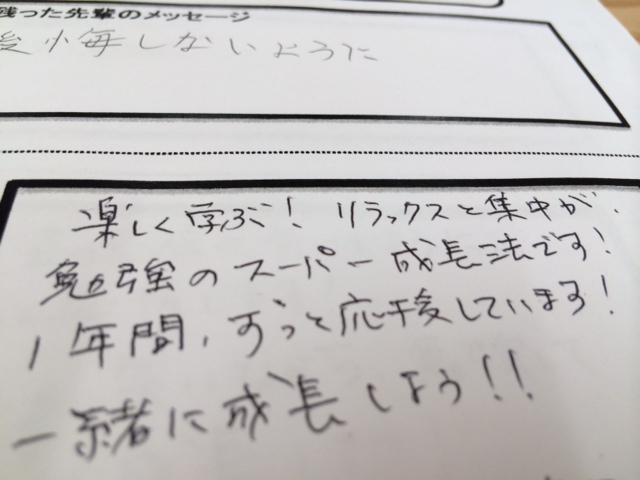 残った先輩のメッセージ
後悔しないように
楽しく学ぶ! リラックスと集中が、
勉強のスーパー成長法です!
1年間、ずっと応援しています!
一緒に成長しよう!!